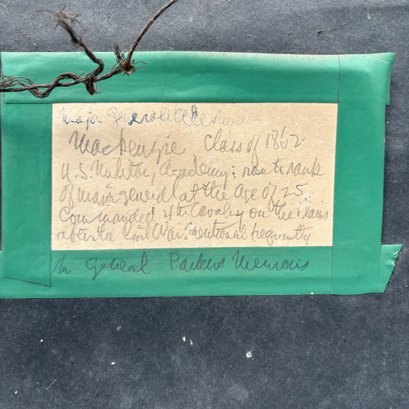 Major General
Mackenzie Class of 1862
U.S. Military Academy; rose to rank
of major general at the age of 25.
Commanded 4th Cavalry on the Plains
after the Civil War. mention frequently
in General Parkers Memoirs